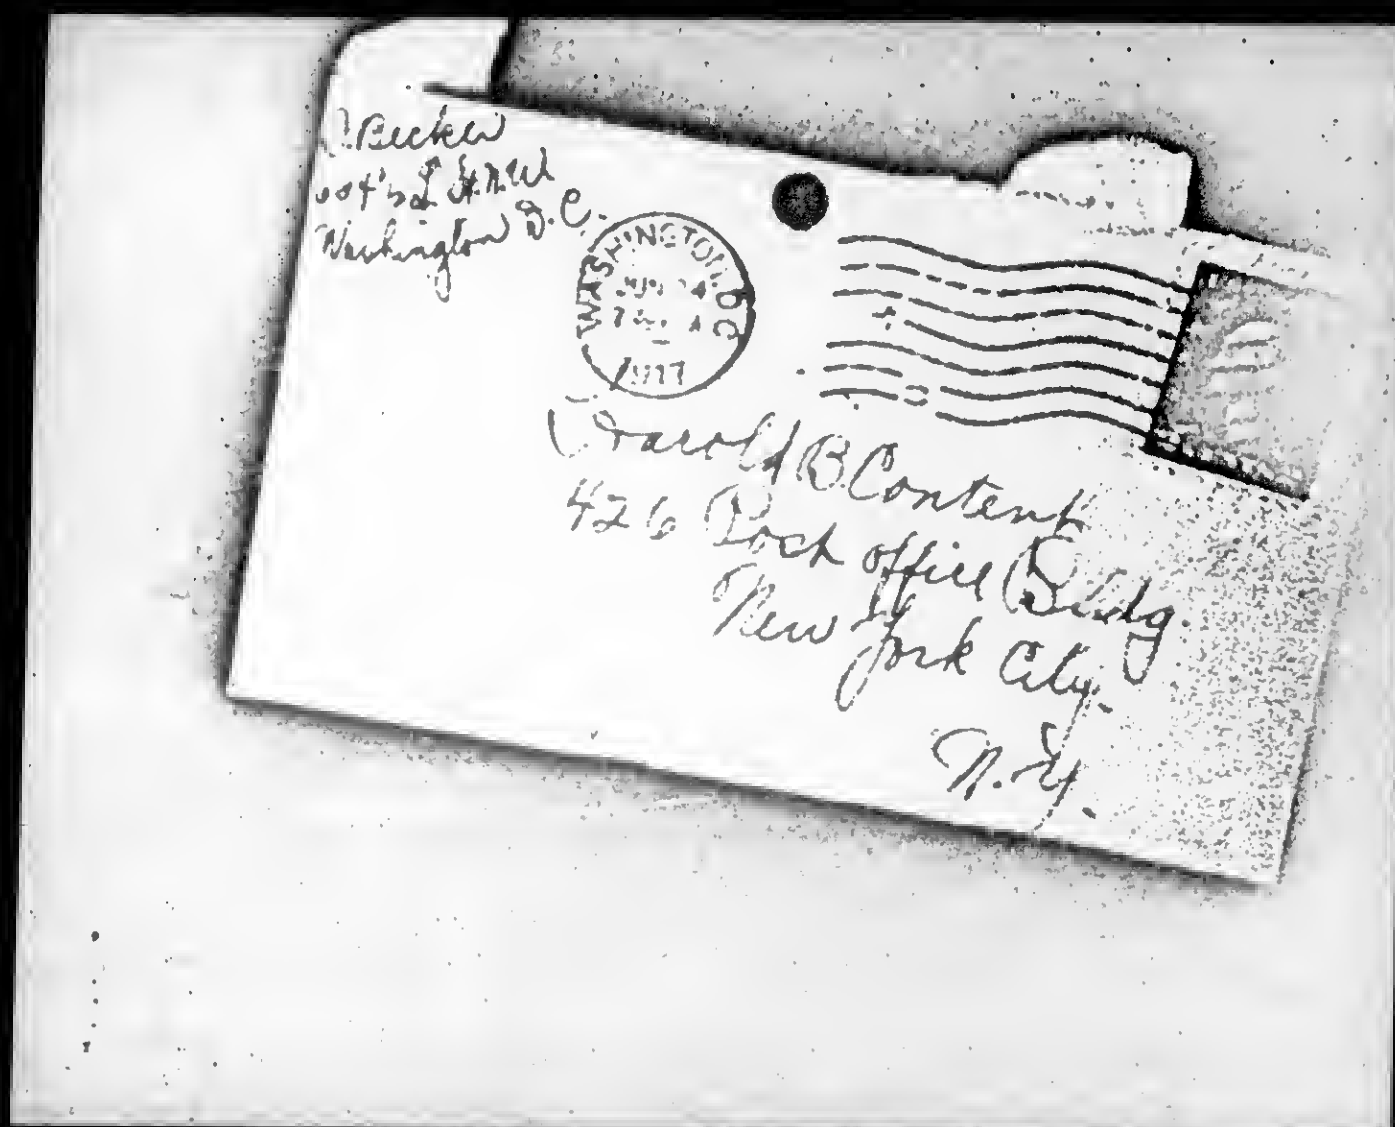 J. Becker
St. N.W.
Washington D.C.
WASHINGTON, D.C.
JUN 24
7
1937
Harold B Content
426 Post office Bldg.
New York City
N.Y.